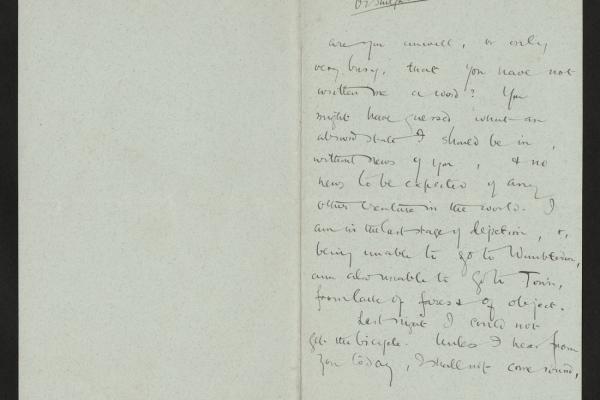 are you unwell, or only
very busy, that you have not
written me a word? You
might have guessed what an
absurd state I should be in,
without news of you, & no
news to be expected of any
other creature in the world. I
am in the last stage of dejection, &,
being unable to go to Wimbledon,
am also unable to go to Town,
from lack of force & of object.
Last night I could not
get the bicycle. Unless I hear from
you today, I shall not come round,